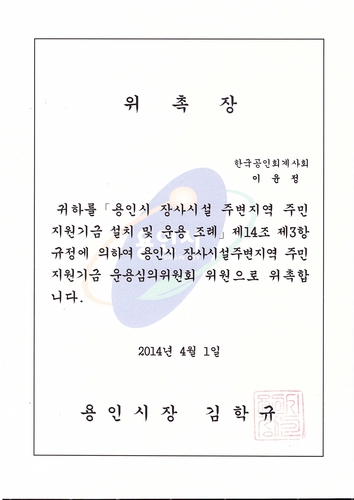 위 촉 장
한국공인회계사회
이 윤 정
귀하를 「용인시 장사시설 주변지역 주민
지원기금 설치 및 운용 조례」 제14조 제3항
규정에 의하여 용인시 장사시설주변지역 주민
지원기금 운용심의위원회 위원으로 위촉합
니다.
2014년 4월 1일
용 인 시 장 김 학 규